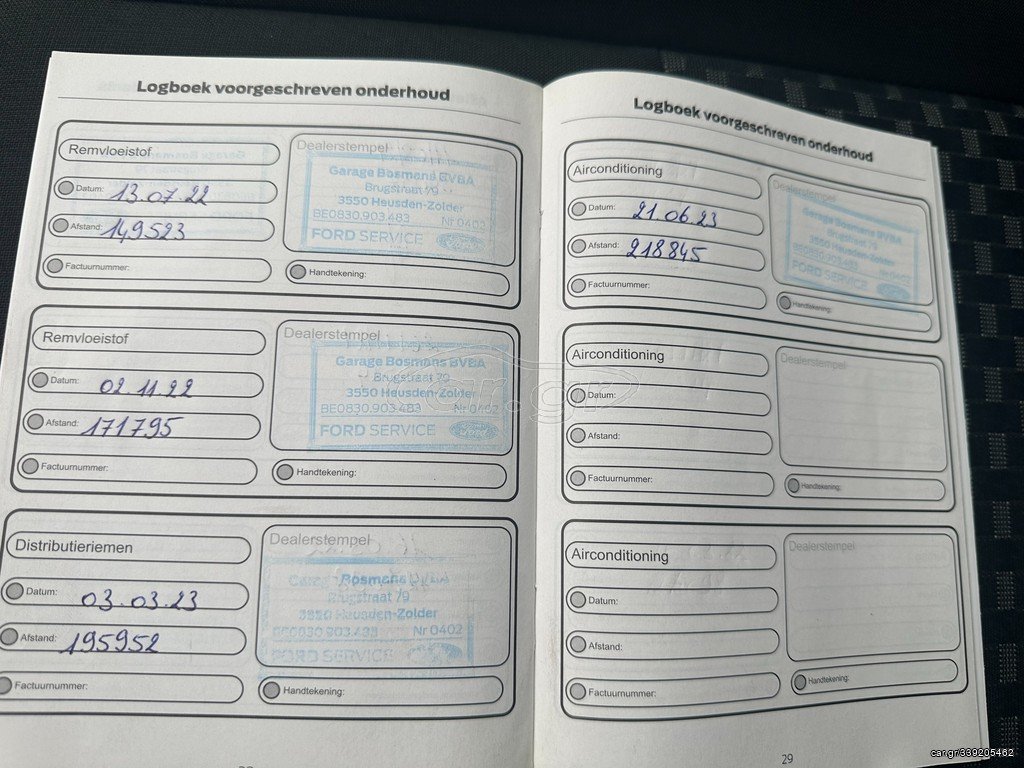 Logboek voorgeschreven onderhoud
Remvloeistof
Datum: 13.07.22
Afstand: 149523
Factuurnummer:
Dealerstempel
Garage Bosmans BVBA
Brugstraat 79
3550 Heusden-Zolder
BE0830.903.483 Nr 0402
FORD SERVICE
Handtekening:
Remvloeistof
Datum: 02.11.22
Afstand: 171795
Factuurnummer:
Dealerstempel
Garage Bosmans BVBA
Brugstraat 79
3550 Heusden-Zolder
BE0830.903.483 Nr 0402
FORD SERVICE
Handtekening:
Distributieriemen
Datum: 03.03.23
Afstand: 195952
Factuurnummer:
Dealerstempel
Garage Bosmans BVBA
Brugstraat 79
3550 Heusden-Zolder
BE0830.903.483 Nr 0402
FORD SERVICE
Handtekening:
Logboek voorgeschreven onderhoud
Airconditioning
Datum: 21.06.23
Afstand: 218845
Factuurnummer:
Dealerstempel
Garage Bosmans BVBA
Brugstraat 79
3550 Heusden-Zolder
BE0830.903.483 Nr 0402
FORD SERVICE
Handtekening:
Airconditioning
Datum:
Afstand:
Factuurnummer:
Dealerstempel
Handtekening:
Airconditioning
Datum:
Afstand:
Factuurnummer:
Dealerstempel
Handtekening:
29
car.gr
car.gr/339205462